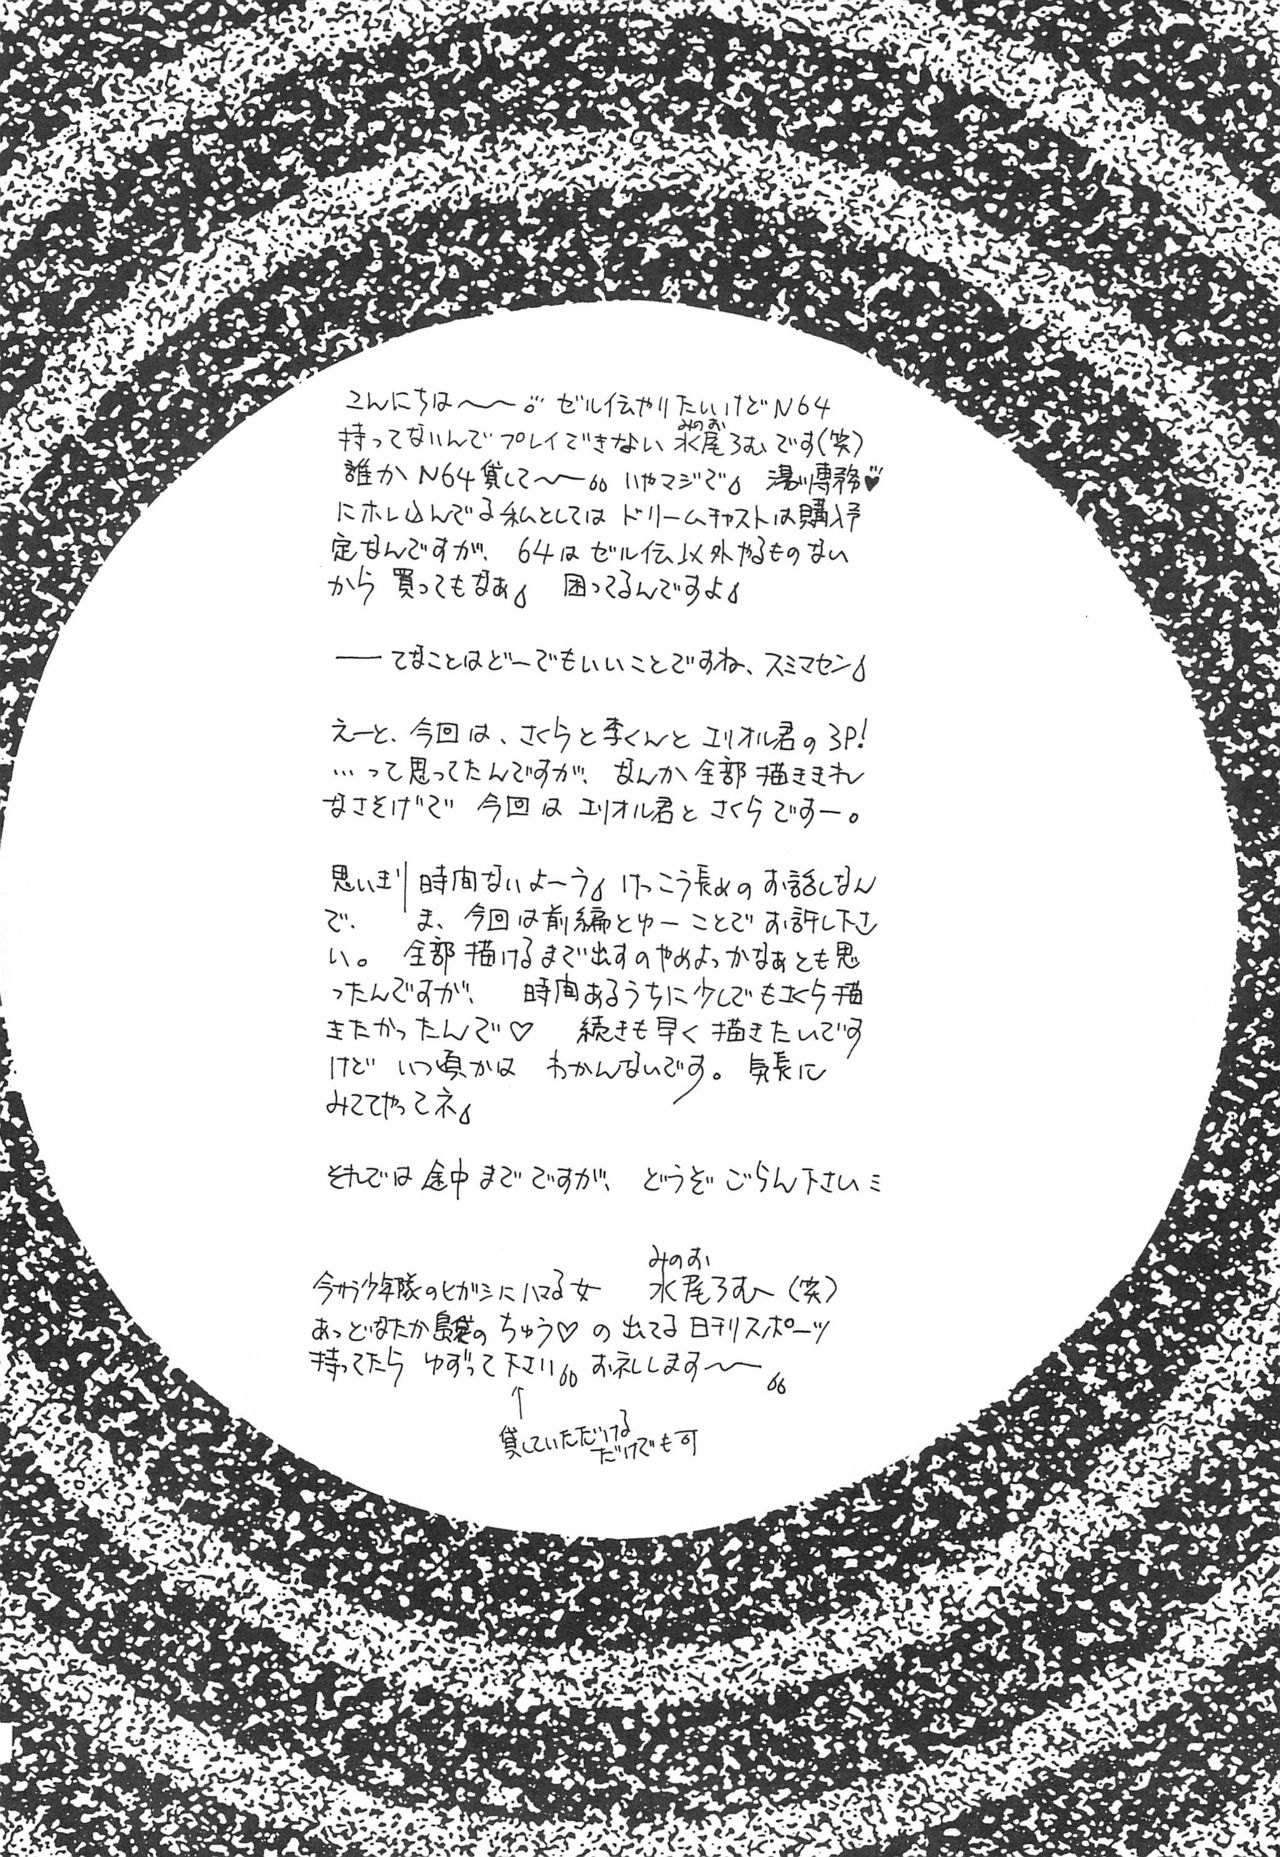 こんにちは〜〜。ゼル伝やりたいけどN64
みのお
持ってないんで プレイできない 水尾ろむです(笑)
誰か N64 貸して〜〜 いやマジで 湯川専務♥
にホレ込んでる私としては ドリームキャストは購入予
定なんですが、64は ゼル伝以外やるものない
から 買ってもなぁ 困ってるんですよ
── てなことはどーでもいいことですね、スミマセン
えーと、今回は、さくらと李くんと エリオル君の 3P!
…って思ってたんですが、なんか全部描ききれ
なさそげで 今回は エリオル君と さくらですー。
思いきり 時間ないよーう けっこう長めの お話しなん
で、 ま、今回は前編とゆーことで お許し下さ
い。 全部描けるまで出すのやめよっかなぁとも思
ったんですが、 時間あるうちに少しでもさくら描
きたかったんで♡ 続きも早く描きたいです
けど いつ頃かは わかんないです。 気長に
みててやってネ
それでは 途中までですが、 どうぞ ごらん下さい
みのお
今さら少年隊のヒガシにハマる女 水尾ろむ(笑)
あっどなたか島袋の ちゅう♡ の 出てる 日刊スポーツ
持ってたら ゆずって下さい お礼します〜〜
↑
貸していただける
だけでも可